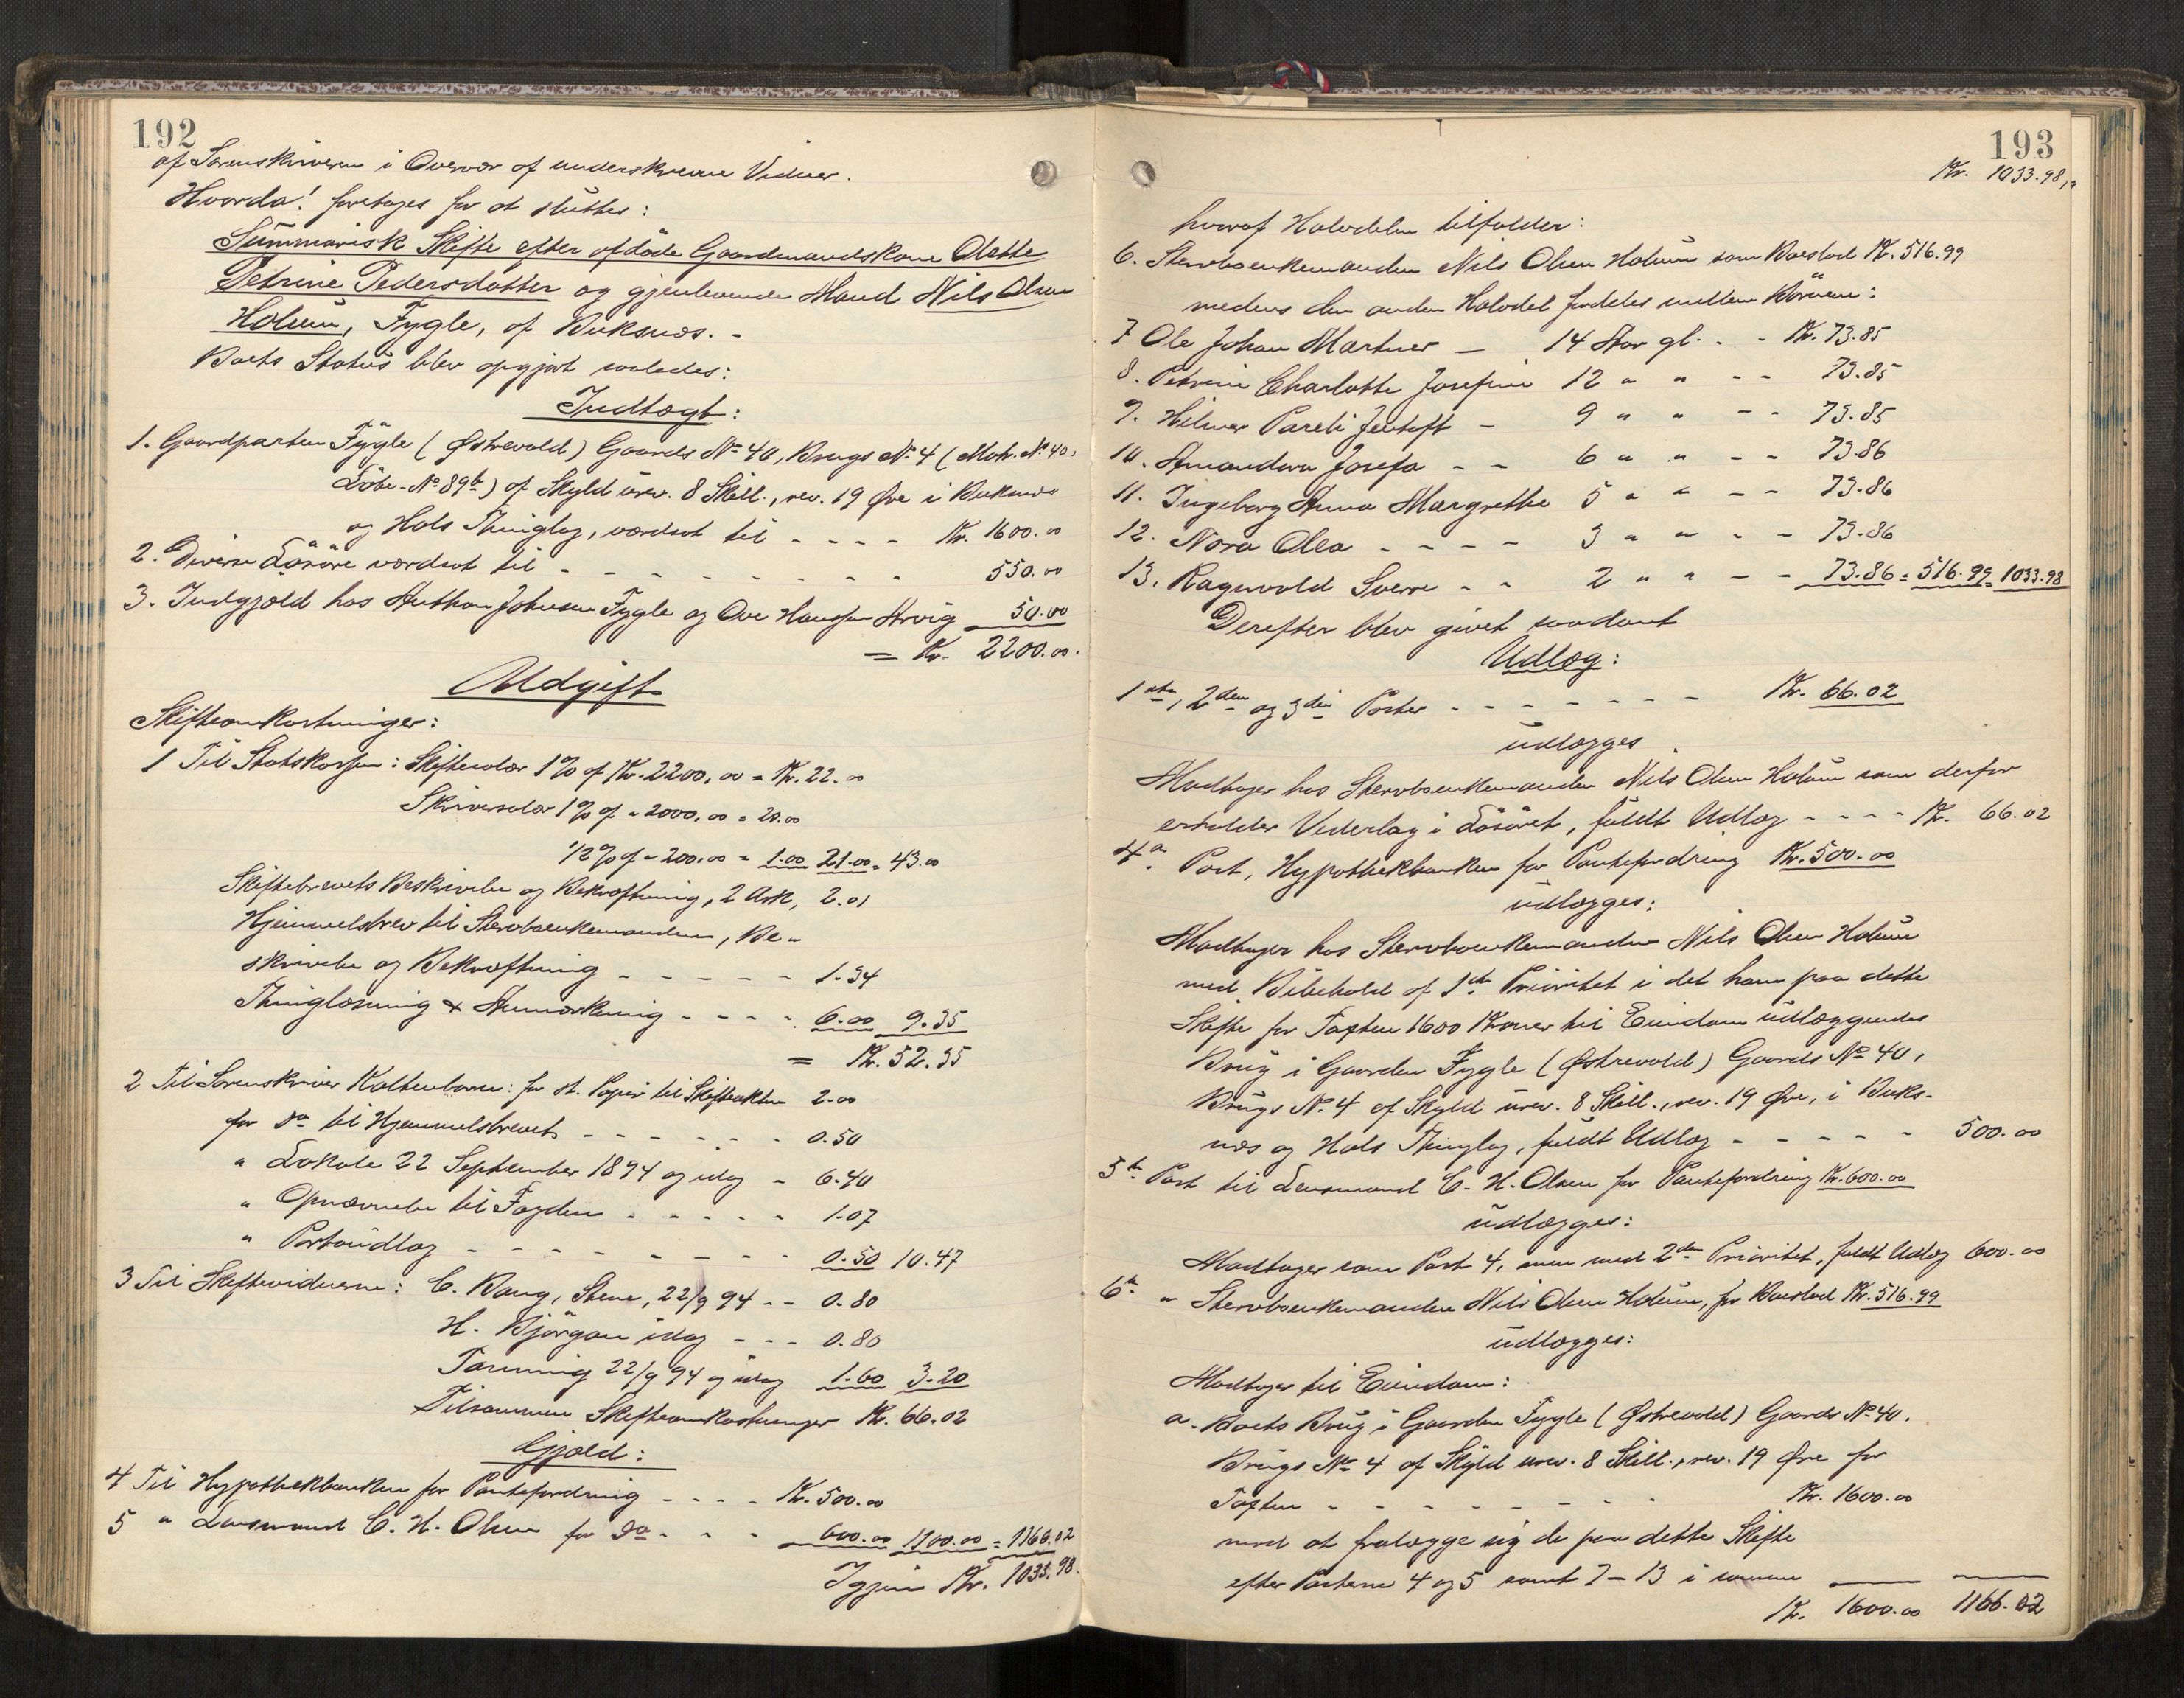 192
af Sorenskriveren i Overvær af underskrevne Vidner.
Hvorda! foretages for at sluttes:
Summarisk Skifte efter afdöde Gaardmandskone Olette
Petrine Pedersdatter og gjenlevende Mand Nils Olsen
Holum, Fygle, af Buksnæs. -
Boets Status blev opgjort saaledes:
Indtægt:
1. Gaardparten Fygle (Østrevold) Gaards No 40, Brugs No 4 (Matr. No 40,
Löbe-No 89b) af Skyld urev. 8 Skill., rev. 19 Øre i Buksnæs
og Hols Thinglag, værdsat til - - - - Kr. 1600.00
2. Diverse Lösöre værdsat til - - - - - - - - 550.00
3. Indgjæld hos Anthon Johnsen Fygle og Ove Hansen Arvig 50.00
= Kr. 2200.00.
Udgift
Skifteomkostninger:
1 Til Statskassen: Skiftesalær 1% af Kr. 2200,00 = Kr. 22.00
Skriversalær 1% af " 2000,00 = 20.00
1/2% af " 200.00 = 1.00 21.00 = 43.00
Skiftebrevets Beskrivelse og Bekræftning, 2 Ark, 2.01
Hjemmelsbrev til Stervboenkemanden, Be-
skrivelse og Bekræftning - - - - - 1.34
Thinglæsning & Anmærkning - - - - 6.00 9.35
= Kr. 52.35
2 Til Sorenskriver Koltenborn: for st. Papir til Skifteakten 2.00
for Do til Hjemmelsbrevet - - - - - - 0.50
" Lokale 22 September 1894 og idag - 6.40
" Opnævnelse til Fogden - - - - - 1.07
" Portoudlæg - - - - - - - - 0.50 10.47
3 Til Skiftevidnerne: C. Rang, Stene, 22/9 94 - - 0.80
H. Björgan idag - - - 0.80
22/9 94 og idag 1.60 3.20
Tilsammen Skifteomkostninger Kr. 66.02
Gjæld:
4 Til Hypothekbanken for Pantefordring - - - - Kr. 500.00
5 " Lensmand C. H. Olsen for Do - - - 600.00 1100.00 = 1166.02
Igjen Kr. 1033.98.
193
Kr. 1033.98,
hvoraf Halvdelen tilfalder:
6. Stervboenkemanden Nils Olsen Holum som Boeslod Kr. 516.99
medens den anden Halvdel fordeles mellem Börnene:
7 Ole Johan Martner - 14 Aar gl. - - Kr. 73.85
8. Petrine Charlotte Josefine 12 " " - - 73.85
9. Hilmar Pareli Jentoft - 9 " " - - 73.85
10. Amandora Josefa - - 6 " " - - 73.86
11. Ingeborg Anna Margrethe 5 " " - - 73.86
12. Nora Olea - - - - 3 " " - - 73.86
13. Ragnvald Sverre - - 2 " " - - 73.86 = 516.99 = 1033.98
Derefter blev givet saadant
Udlæg:
1ste, 2den og 3die Poster - - - - - - - Kr. 66.02
udlægges
Modtages hos Stervboenkemanden Nils Olsen Holum som derfor
erholder Vederlag i Lösöret, fuldt Udlæg - - - - Kr. 66.02
4de Post, Hypothekbanken for Pantefordring Kr. 500.00
udlægges:
Modtages hos Stervboenkemanden Nils Olsen Holum
med Bibehold af 1ste Prioritet i det ham paa dette
Skifte for Taxten 1600 Kroner til Eiendom udlæggendes
Brug i Gaarden Fygle (Østrevold) Gaards No 40,
Brugs No. 4 af Skyld urev. 8 Skill., rev. 19 Øre, i Buks-
næs og Hols Thinglag, fuldt Udlæg - - - - - 500.00
5te Post til Lensmand C. H. Olsen for Pantefordring Kr. 600.00
udlægges:
Modtages som Post 4, men med 2den Prioritet, fuldt Udlæg 600.00
6te " Stervboenkemanden Nils Olsen Holum, for Boeslod Kr. 516.99
udlægges:
Modtages til Eiendom:
a. Boets Brug i Gaarden Fygle (Østrevold) Gaards No 40.
Brugs No 4 af Skyld urev. 8 Skill., rev. 19 Øre for
Taxten - - - - - - - - Kr. 1600.00
mod at fralægge sig de paa dette Skifte
efter Posterne 4 og 5 samt 7-13 i samme
Kr. 1600.00 1166.02